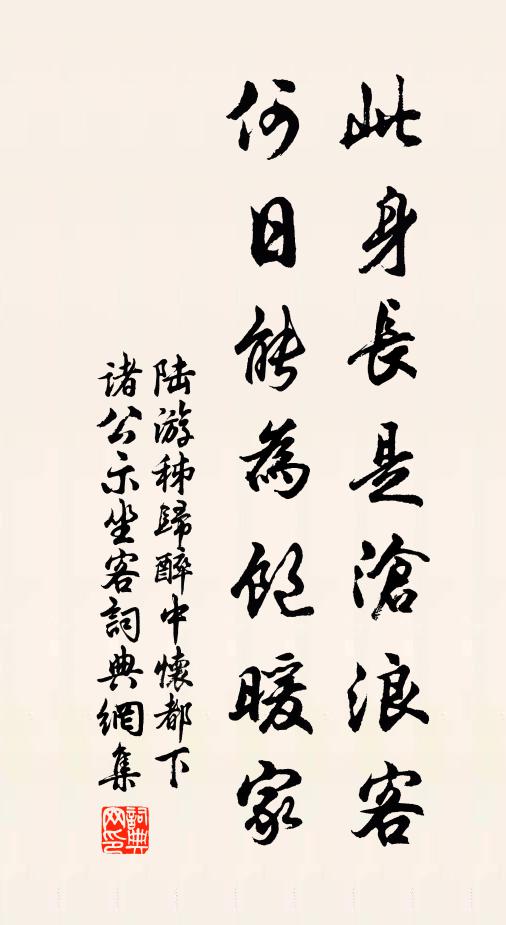 此身長是滄浪客
何日能為飽暖家
陸游秭歸醉中懷都下
諸公示坐客詞典網集
詞典網印